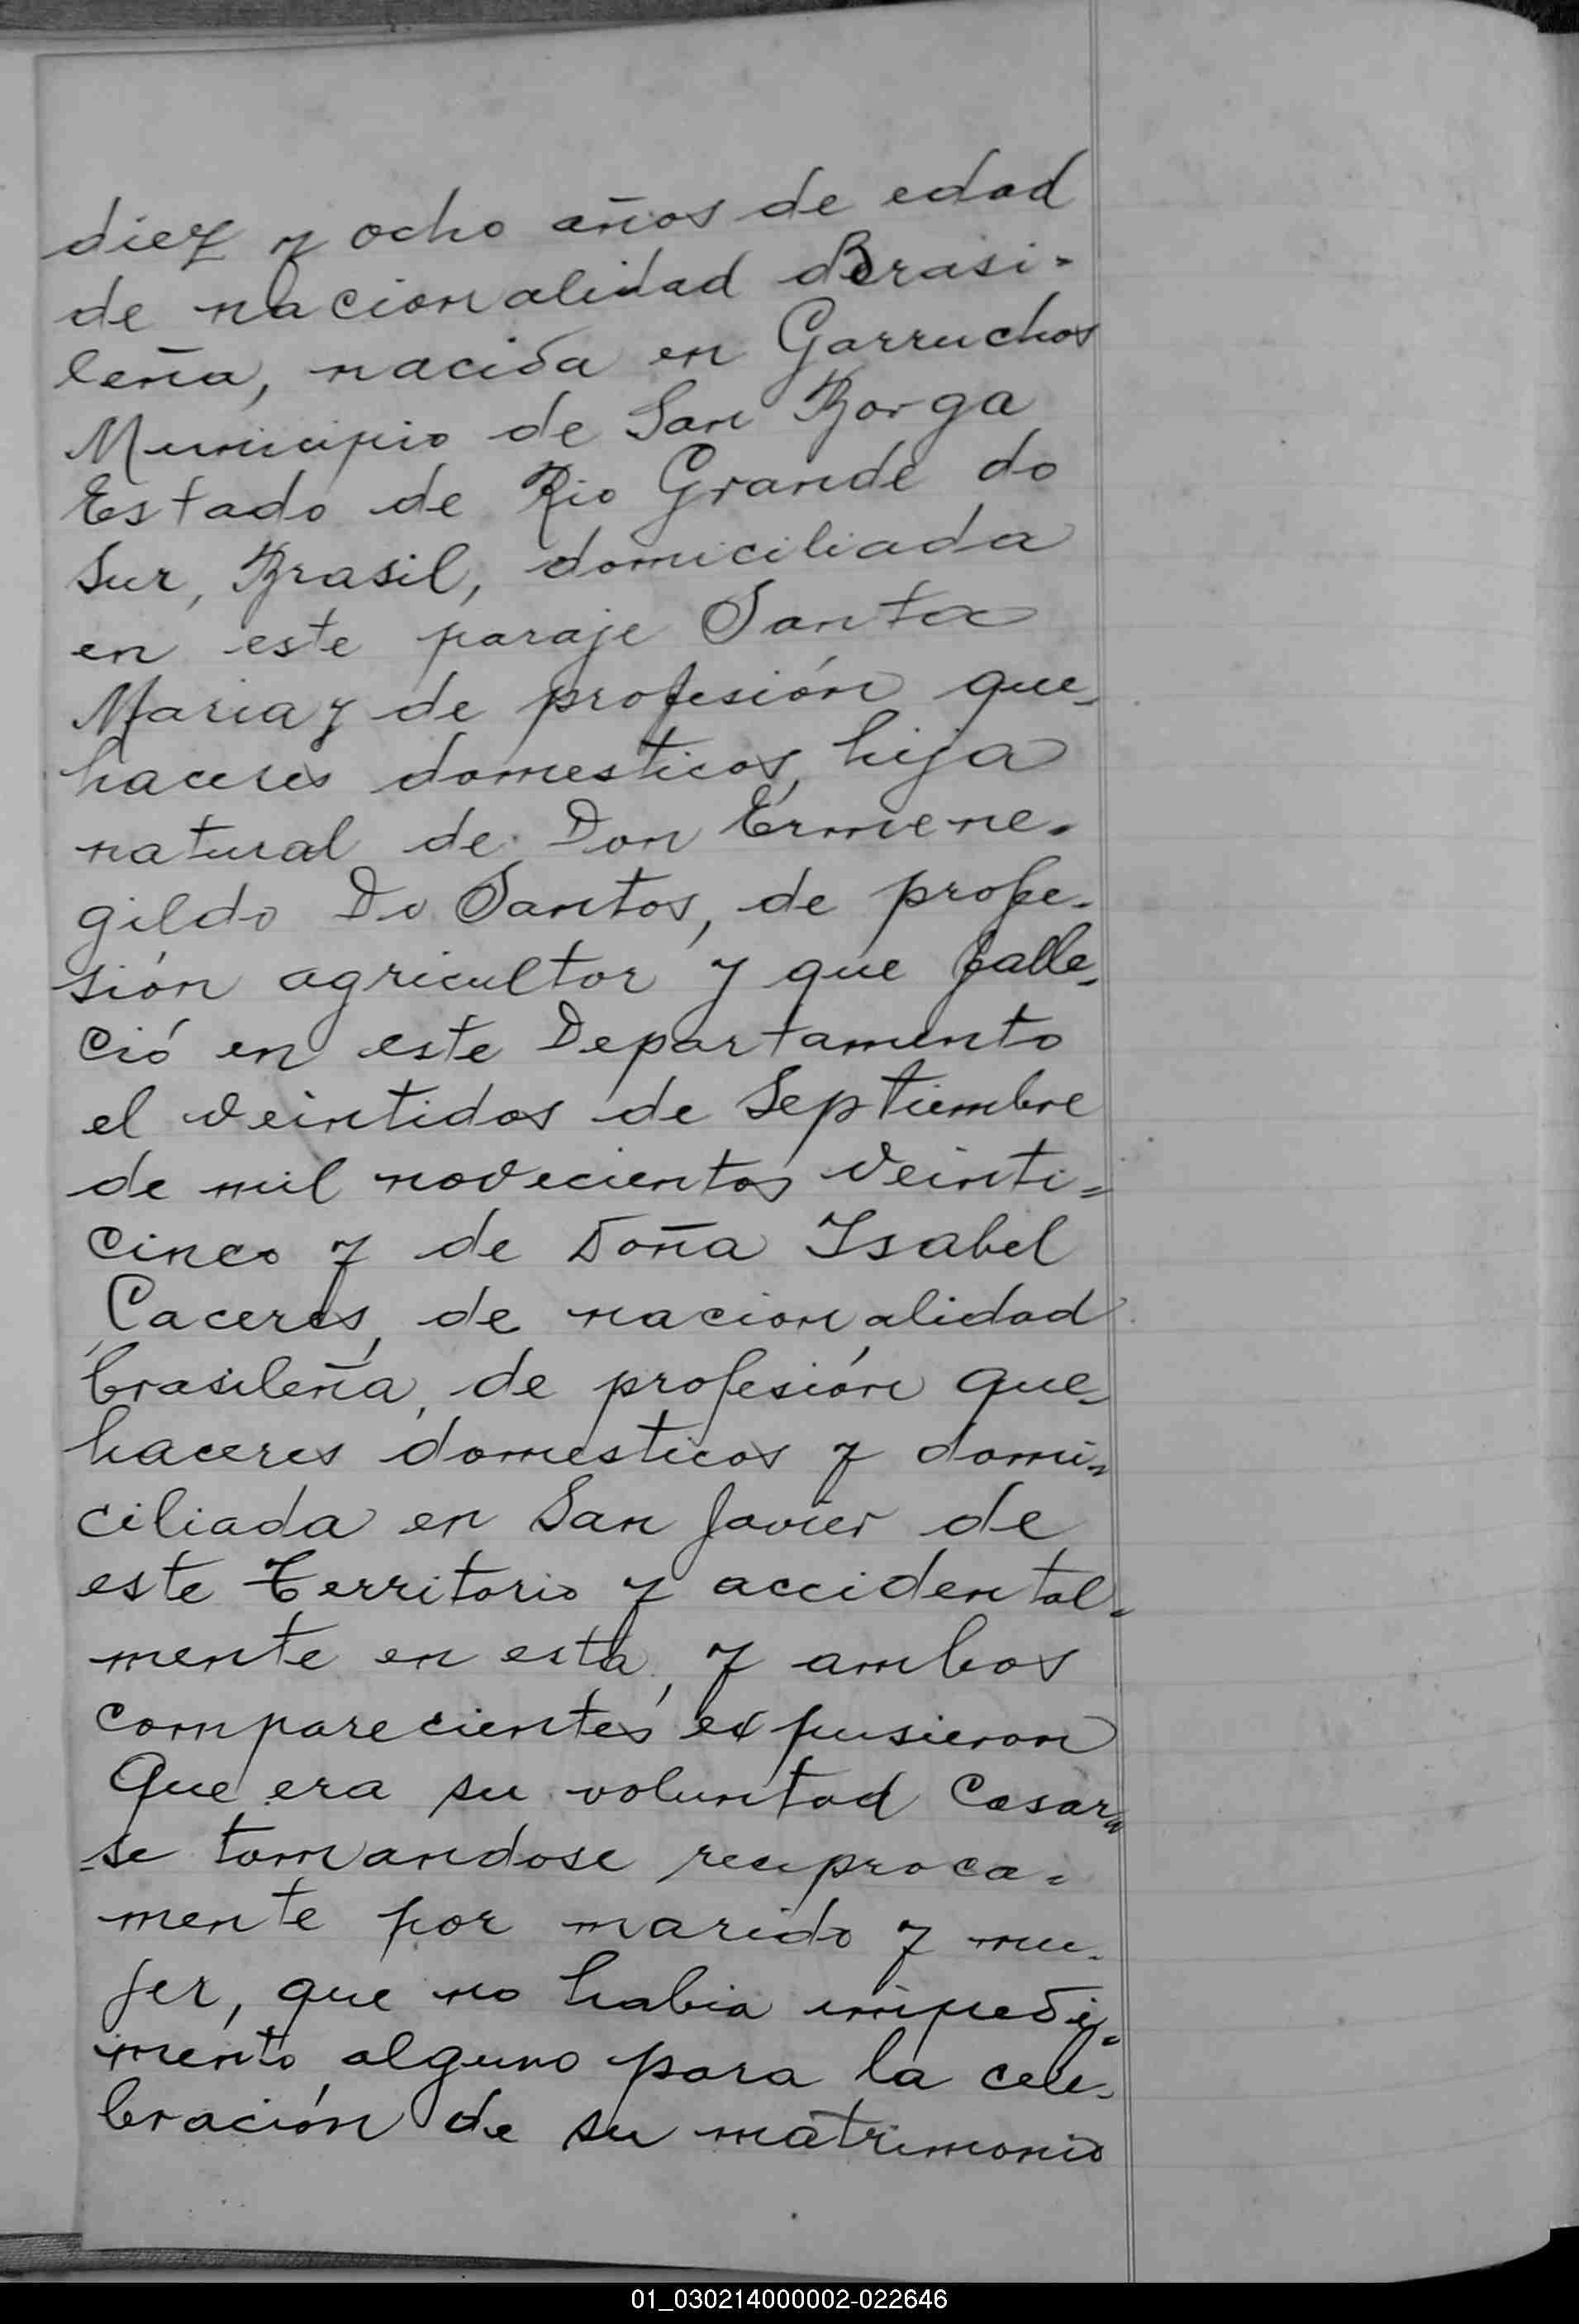 diez y ocho años de edad
de nacionalidad Brasi=
leña, nacida en Garruchos
Municipio de San Borga
Estado de Rio Grande do
Sur, Brasil, domiciliada
en este paraje Santa
Maria y de profesión que-
haceres domesticos, hija
natural de Don Ermene-
gildo Do Santos, de profe-
sión agricultor y que falle-
ció en este Departamento
el veintidos de Septiembre
de mil novecientos veinti=
cinco y de Doña Isabel
Caceres, de nacionalidad
brasileña, de profesión que-
haceres domesticos y domi-
ciliada en San Javier de
este Territorio y accidental-
mente en esta, y ambos
comparecientes expusieron
Que era su voluntad Casar=
=se tomandose reciproca=
mente por marido y mu-
jer, que no habia impedi-
mento alguno para la cele-
bración de su matrimonio
01_030214000002-022646